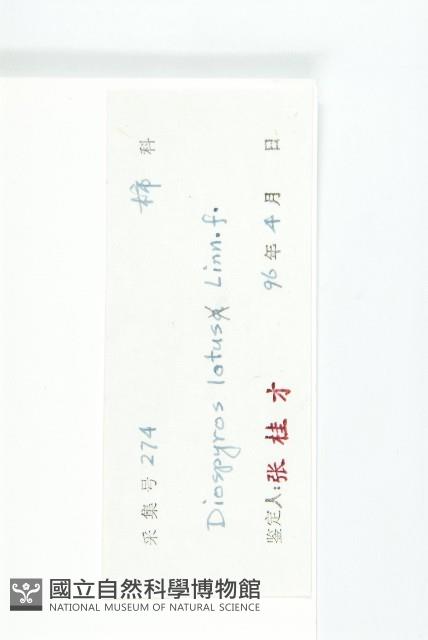 采集号 274 柿 科
Diospyros lotus Linn.f.
鉴定人: 张桂才 96年4月 日
國立自然科學博物館
NATIONAL MUSEUM OF NATURAL SCIENCE